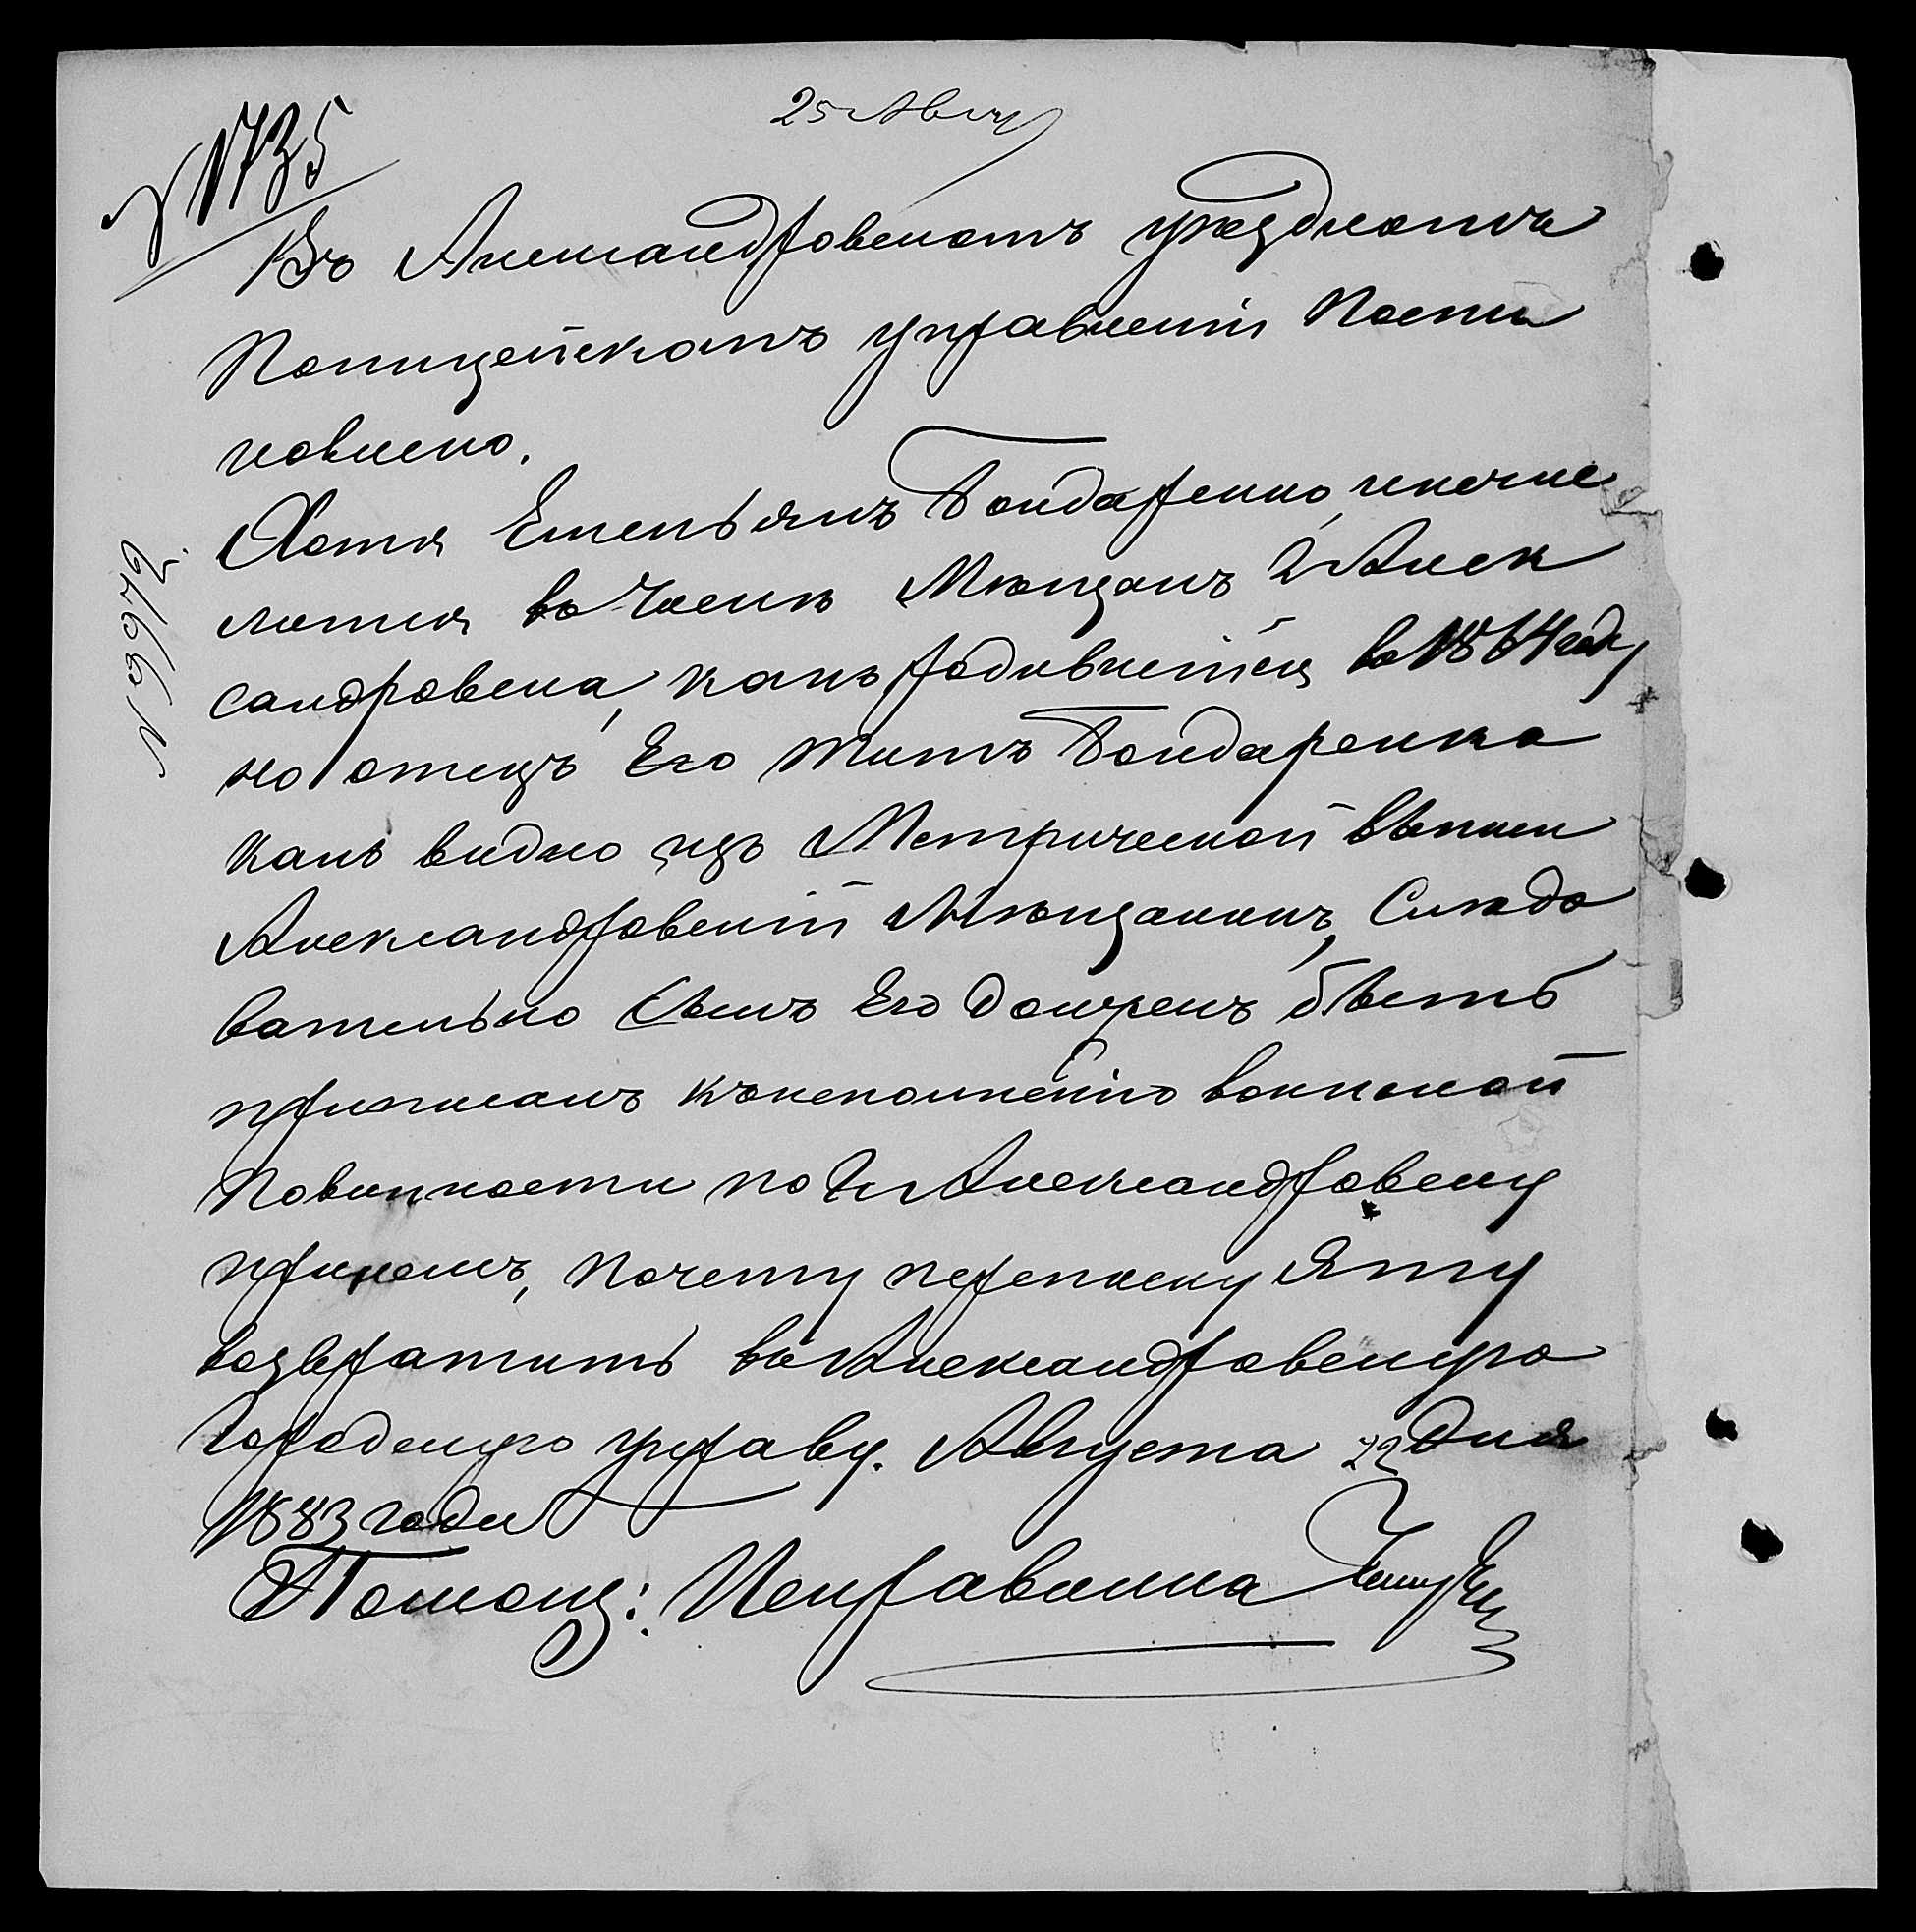 25 Авгу
N 1735
Въ Александровскомъ уѣздномъ
Полицейскомъ управленіи Поста
новлено.
Хотя Емельянъ Бондаренко, исклю
лотся въ числѣ Мѣщанъ г Алек
сандровска, какъ родившійся въ 1864 году
но отецъ Его Титъ Бондаренко
какъ видно изъ Метрической выписи
Александровскій Мѣщанинъ, Слѣдо
вательно Сынъ Его долженъ быть
приписанъ къ исполненію воинской
Повинности по Г. Александровску
почему переписку эту
возвратить въ Александровскую
Городскую управу. Августа 22 дня
1883 года
Помощ: Исправника
N 9972.